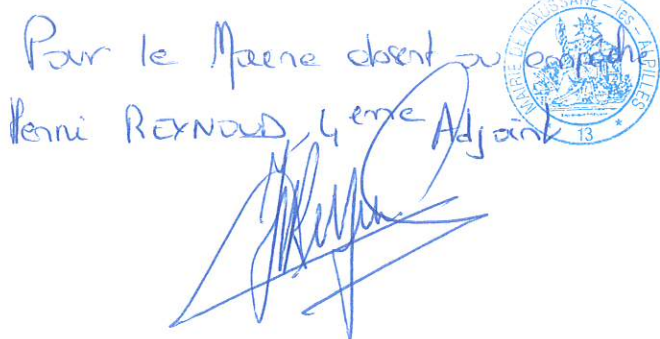 Pour le Maire absent ou empêché
Henri REYNOUD, 4eme Adjoint
MAIRIE DE MAUSSANE-les-ALPILLES
13